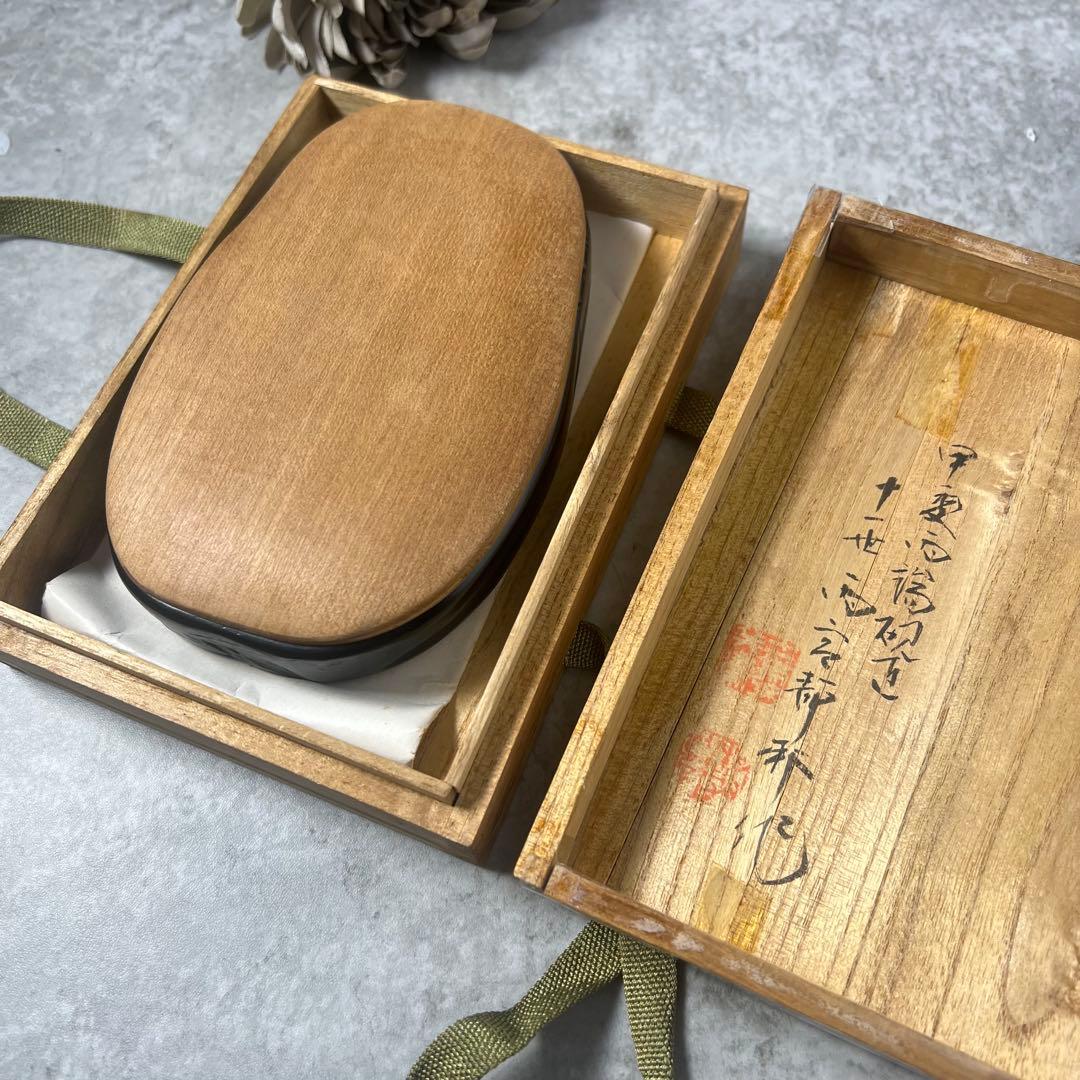 甲斐雨端硯造
十一世 雨宮静軒作